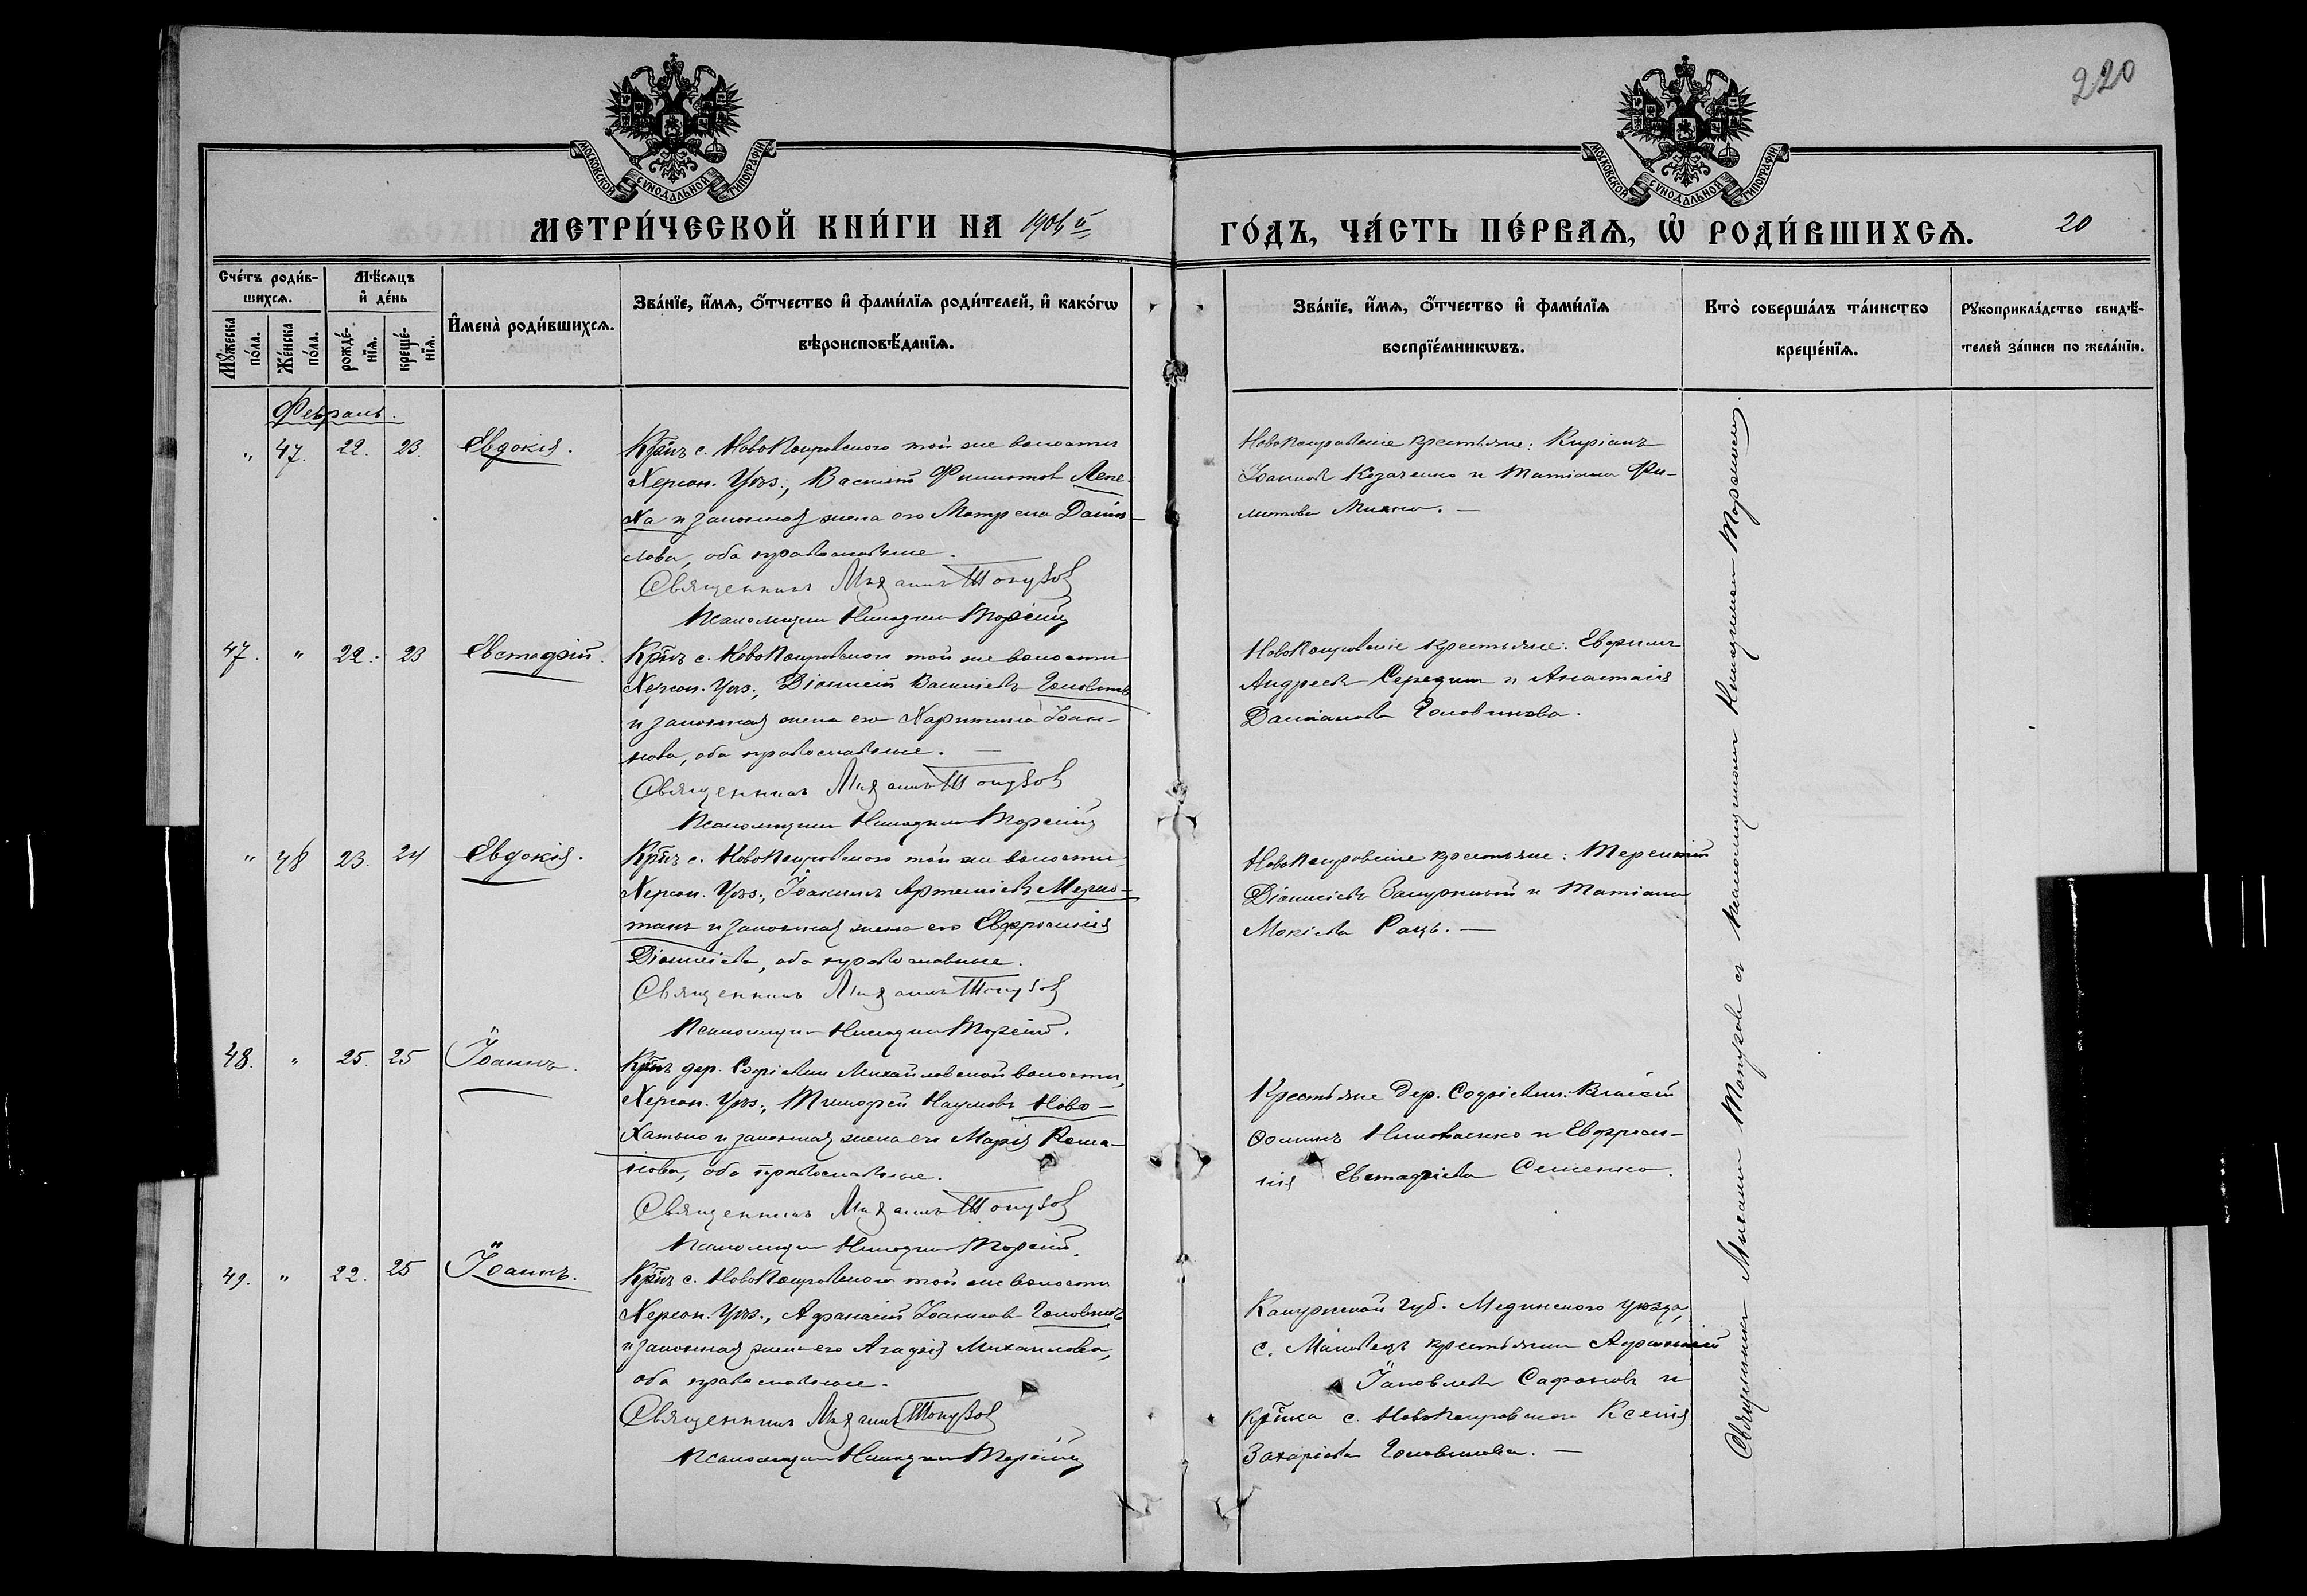 220
МОСКОВСКОЙ СѴНОДАЛЬНОЙ ТИПОГРАФІИ
МОСКОВСКОЙ СѴНОДАЛЬНОЙ ТИПОГРАФІИ
МЕТРИ́ЧЕСКОЙ КНИ́ГИ НА
ГО́ДЪ, ЧА́СТЬ ПЕ́РВАѦ, Ѡ҆ РОДИ́ВШИХСѦ.
20
Сче́тъ роди́в-
шихсѧ.
Мꙋ́жеска по́ла.
Же́нска по́ла.
Мѣ́сѧцъ
и҆ де́нь
рожде́-
нїѧ.
креще́-
нїѧ.
И҆мена̀ роди́вшихсѧ.
Зва́нїе, и҆́мѧ, ѻ҆́тчество и҆ фами́лїѧ роди́телей, и҆ како́гѡ
вѣроисповѣ́данїѧ.
Зва́нїе, и҆́мѧ, ѻ҆́тчество и҆ фами́лїѧ
воспрїе́мникѡвъ.
Кто̀ соверша́лъ та́инство
креще́нїѧ.
Рꙋкоприкла́дство свидѣ́-
телей за́писи по жела́нїю.
Февраль.
" 47. 22. 23. Евдокія.
Кр̃нъ с. НовоПокровского той же волости
Херсон. Уѣз., Василій Филиппов Лепе-
ха и законная жена его Матрена Данiи-
лова, оба православные.
Священникъ Михаилъ Топузов
Псаломщик Никодим Торскій
НовоПокровскіе крестьяне: Кирiанъ
Іоаннов Козаченко и Татiана Фи-
47. " 22. 23 Евстафій.
Кр̃нъ с. НовоПокровского той же волости
Херсон. Уѣз., Діонисій Васильевъ Головинъ
и законная жена его Харитина Іоан-
нова, оба православные. —
Священникъ Михаилъ Топузов
Псаломщик Никодим Торскій
НовоПокровскіе крестьяне: Ефримъ
Андреевъ Середин и Анастасія
Даміанова Головинова.
" 48 23. 24 Евдокія.
Кр̃нъ с. НовоПокровского той же волости
Херсон. Уѣз., Іоакимъ Артеміевъ
и законная жена его Евфросинія
Діонисіева, оба православные.
Священникъ Михаилъ Топузов
Псаломщик Никодим Торскій.
НовоПокровскіе крестьяне: Терентій
Діонисіевъ и Татiана
Мокіева Рацъ. —
48. " 25. 25 Іоаннъ.
Кр̃нъ дер. Софіевки Михайловской волости,
Херсон. Уѣз., Тимофей Наумовъ Ново-
хатько и законная жена его Марія Рома-
нова, оба православные.
Священникъ Михаилъ Топузов
Псаломщик Никодим Торскій.
Крестьяне Дер. Софіевки: Власій
Ѳоминъ Николаенко и Евфроси-
нія Евстафіева Семенко.
49. " 22. 25 Іоаннъ.
Кр̃нъ с. НовоПокровского той же волости
Херсон. Уѣз., Афанасій Іоаннов Головинъ
и законная жена его Агафія Михаилова,
оба православные.
Священникъ Михаилъ Топузов
Псаломщик Никодим Торскій
Калужской губ. Медынского уѣзда,
с. крестьянин Афанасій
Іаковлев Сафоновъ и
Кр̃нка с. НовоПокровского Ксенія
Захаріева Головинова. —
Священникъ Михаил Топузов с псаломщиком Никодимом Торскимъ.